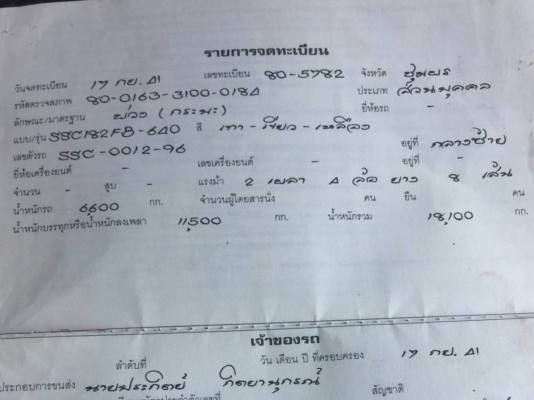 รายการจดทะเบียน
วันจดทะเบียน 17 กย. 41 เลขทะเบียน 80-5782 จังหวัด ชุมพร
รหัสตรวจสภาพ 80-0163-3100-0184 ประเภท ส่วนบุคคล
ลักษณะ/มาตรฐาน พ่วง (กระบะ) ยี่ห้อรถ -
แบบ/รุ่น SSC182FB-640 สี เทา-เขียว-เหลือง
เลขตัวรถ SSC-0012-96 อยู่ที่ กลางซ้าย
ยี่ห้อเครื่องยนต์ - เลขเครื่องยนต์ - อยู่ที่ -
จำนวน - สูบ - แรงม้า 2 เพลา 4 ล้อ ยาง 8 เส้น
น้ำหนักรถ 6,600 กก. จำนวนผู้โดยสารนั่ง คน ยืน คน
น้ำหนักบรรทุกหรือน้ำหนักลงเพลา 11,500 กก. น้ำหนักรวม 18,100 กก.
เจ้าของรถ
ลำดับที่ วัน เดือน ปี ที่ครอบครอง 17 กย. 41
ประกอบการขนส่ง นายประกิตย์ กิตยานุกรณ์ สัญชาติ